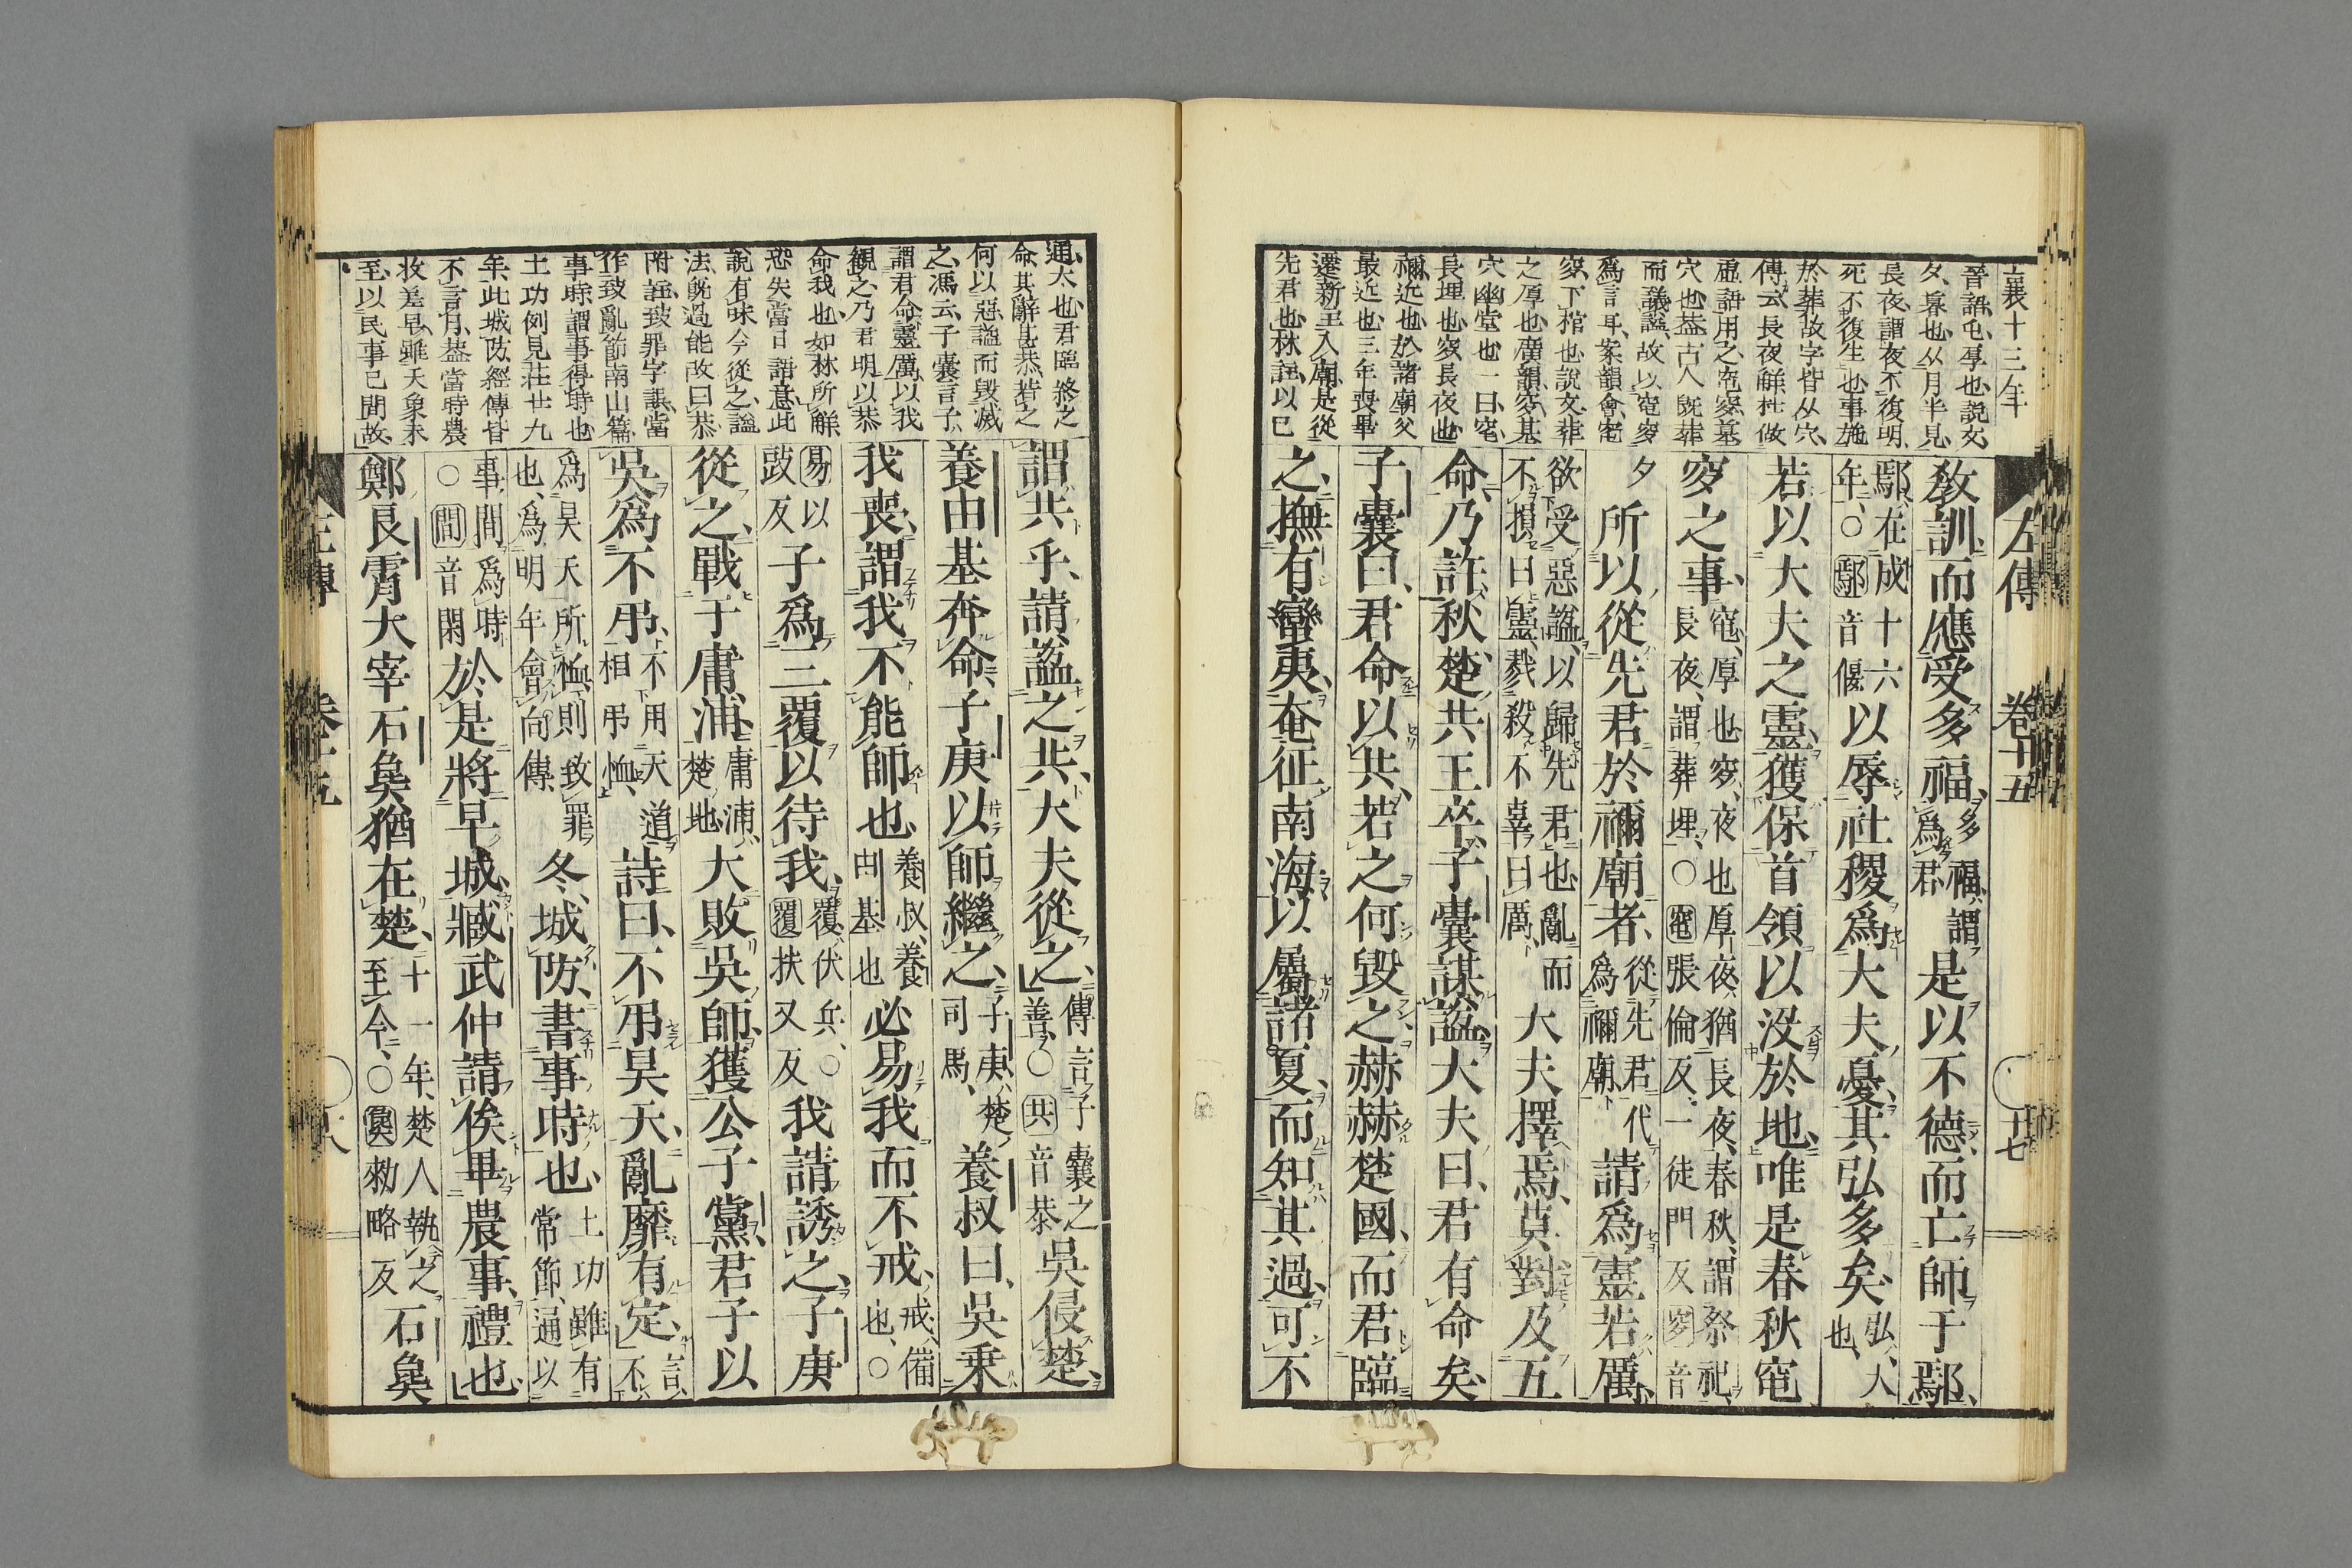 襄十三年
晉語屯厚也說文
夕暮也从月半見
長夜謂夜不復明
死不復生也事施
於葬故字皆从穴
傳云長夜觧杜做
虛語用之窀穸墓
穴也葢古人既葬
而議諡故以窀穸
爲言耳案韻會窀
穸下棺也說文葬
之厚也廣韻穸墓
穴幽堂也一曰窀
長埋也穸長夜也
禰近也於諸廟父
最近也三年喪畢
遷新主入廟是從
先君也林註以已
教訓而應受多福多福謂爲君是以不德而亡師于鄢
鄢在成十六年○鄢音偃以辱社稷爲大夫憂其弘多矣弘大也
若以大夫之靈獲保首領以沒於地唯是春秋窀
穸之事窀厚也穸夜也厚夜猶長夜春秋謂祭祀長夜謂葬埋○窀張倫反一徒門反穸音
夕所以從先君於禰廟者從先君代爲禰廟請爲靈若厲
欲受惡諡以歸先君也亂而不損曰靈戮殺不辜曰厲大夫擇焉莫對及五
命乃許秋楚共王卒子囊謀諡大夫曰君有命矣
子囊曰君命以共若之何毀之赫赫楚國而君臨
之撫有蠻夷奄征南海以屬諸夏而知其過可不
左傳 卷十五 十七
通太也君臨終之
命其辭甚恭若之
何以惡諡而毀滅
之馮云子囊言子
謂君命靈厲以我
觀之乃君明以恭
命我也如林所觧
恐失當日語意此
說有味今從之諡
法既過能改曰恭
附註致罪字誤當
作致亂節南山篇
事時謂事得時也
土功例見莊廿九
年此城防經傳皆
不言月葢當時農
收差早雖天象未
至以民事已間故
謂共乎請諡之共大夫從之傳言子囊之善○共音恭吳侵楚
養由基奔命子庚以師繼之子庚楚司馬養叔曰吳乗
我喪謂我不能師也養叔養由基也必易我而不戒戒備也○
易以豉反子爲三覆以待我覆伏兵○覆扶又反我請誘之子庚
從之戰于庸浦庸浦楚地大敗吳師獲公子黨君子以
吳爲不弔不用天道相弔恤詩曰不弔昊天亂靡有定言不
爲昊天所恤則致罪也爲明年會向傳冬城防書事時也土功雖有常節通以
事間爲時○間音閑於是將早城臧武仲請俟畢農事禮也
鄭良霄大宰石㚟猶在楚十一年楚人執之至今○㚟勑略反石㚟